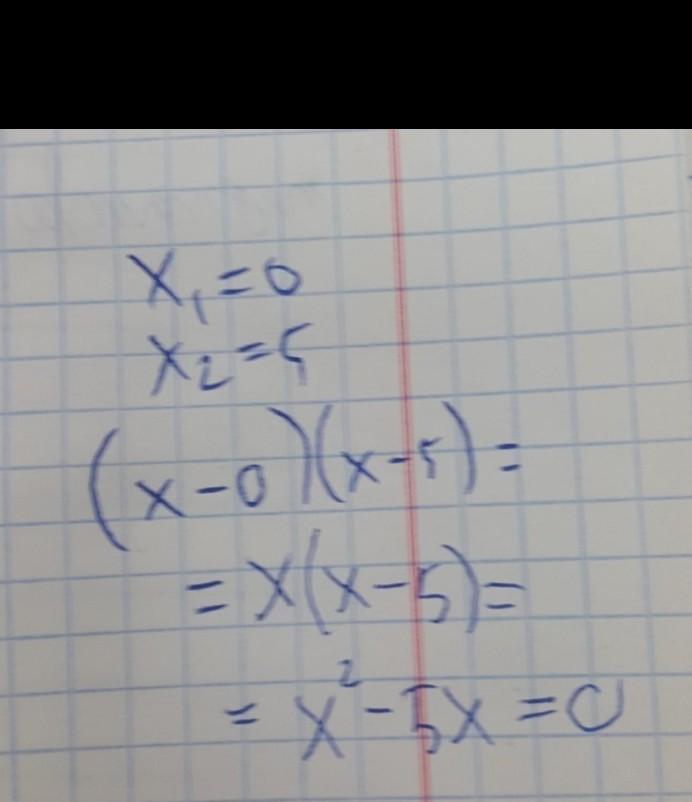 x₁=0
x₂=5
(x-0)(x-5)=
=x(x-5)=
=x²-5x=0